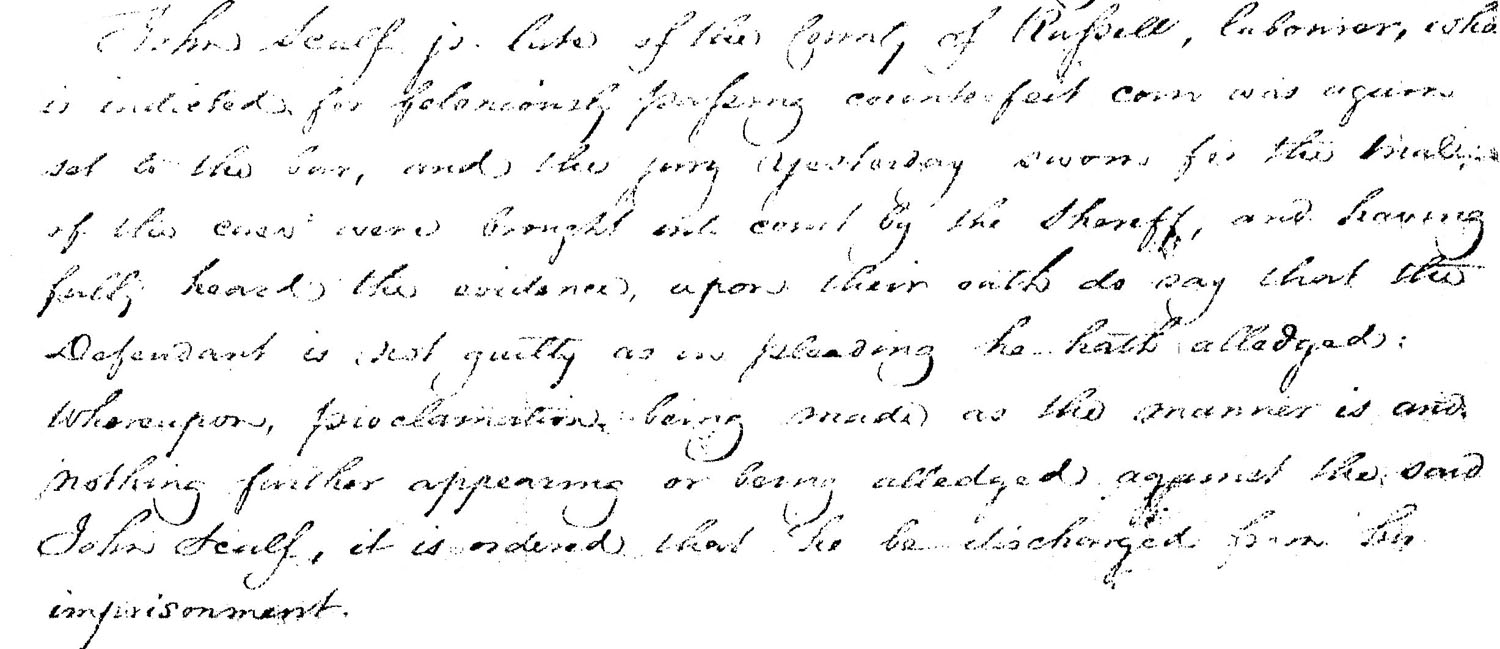 John Scalf jr. late of the County of Russell, labourer, who
is indicted for feloniously passing counterfeit coin was again
set to the bar, and the jury yesterday sworn for the trial
of this case were brought into court by the Sheriff, and having
fully heard the evidence, upon their oath do say that the
Defendant is not guilty as in pleading he hath alledged:
Whereupon, proclamation being made as the manner is and
nothing further appearing or being alledged against the said
John Scalf, it is ordered that he be discharged from his
imprisonment.